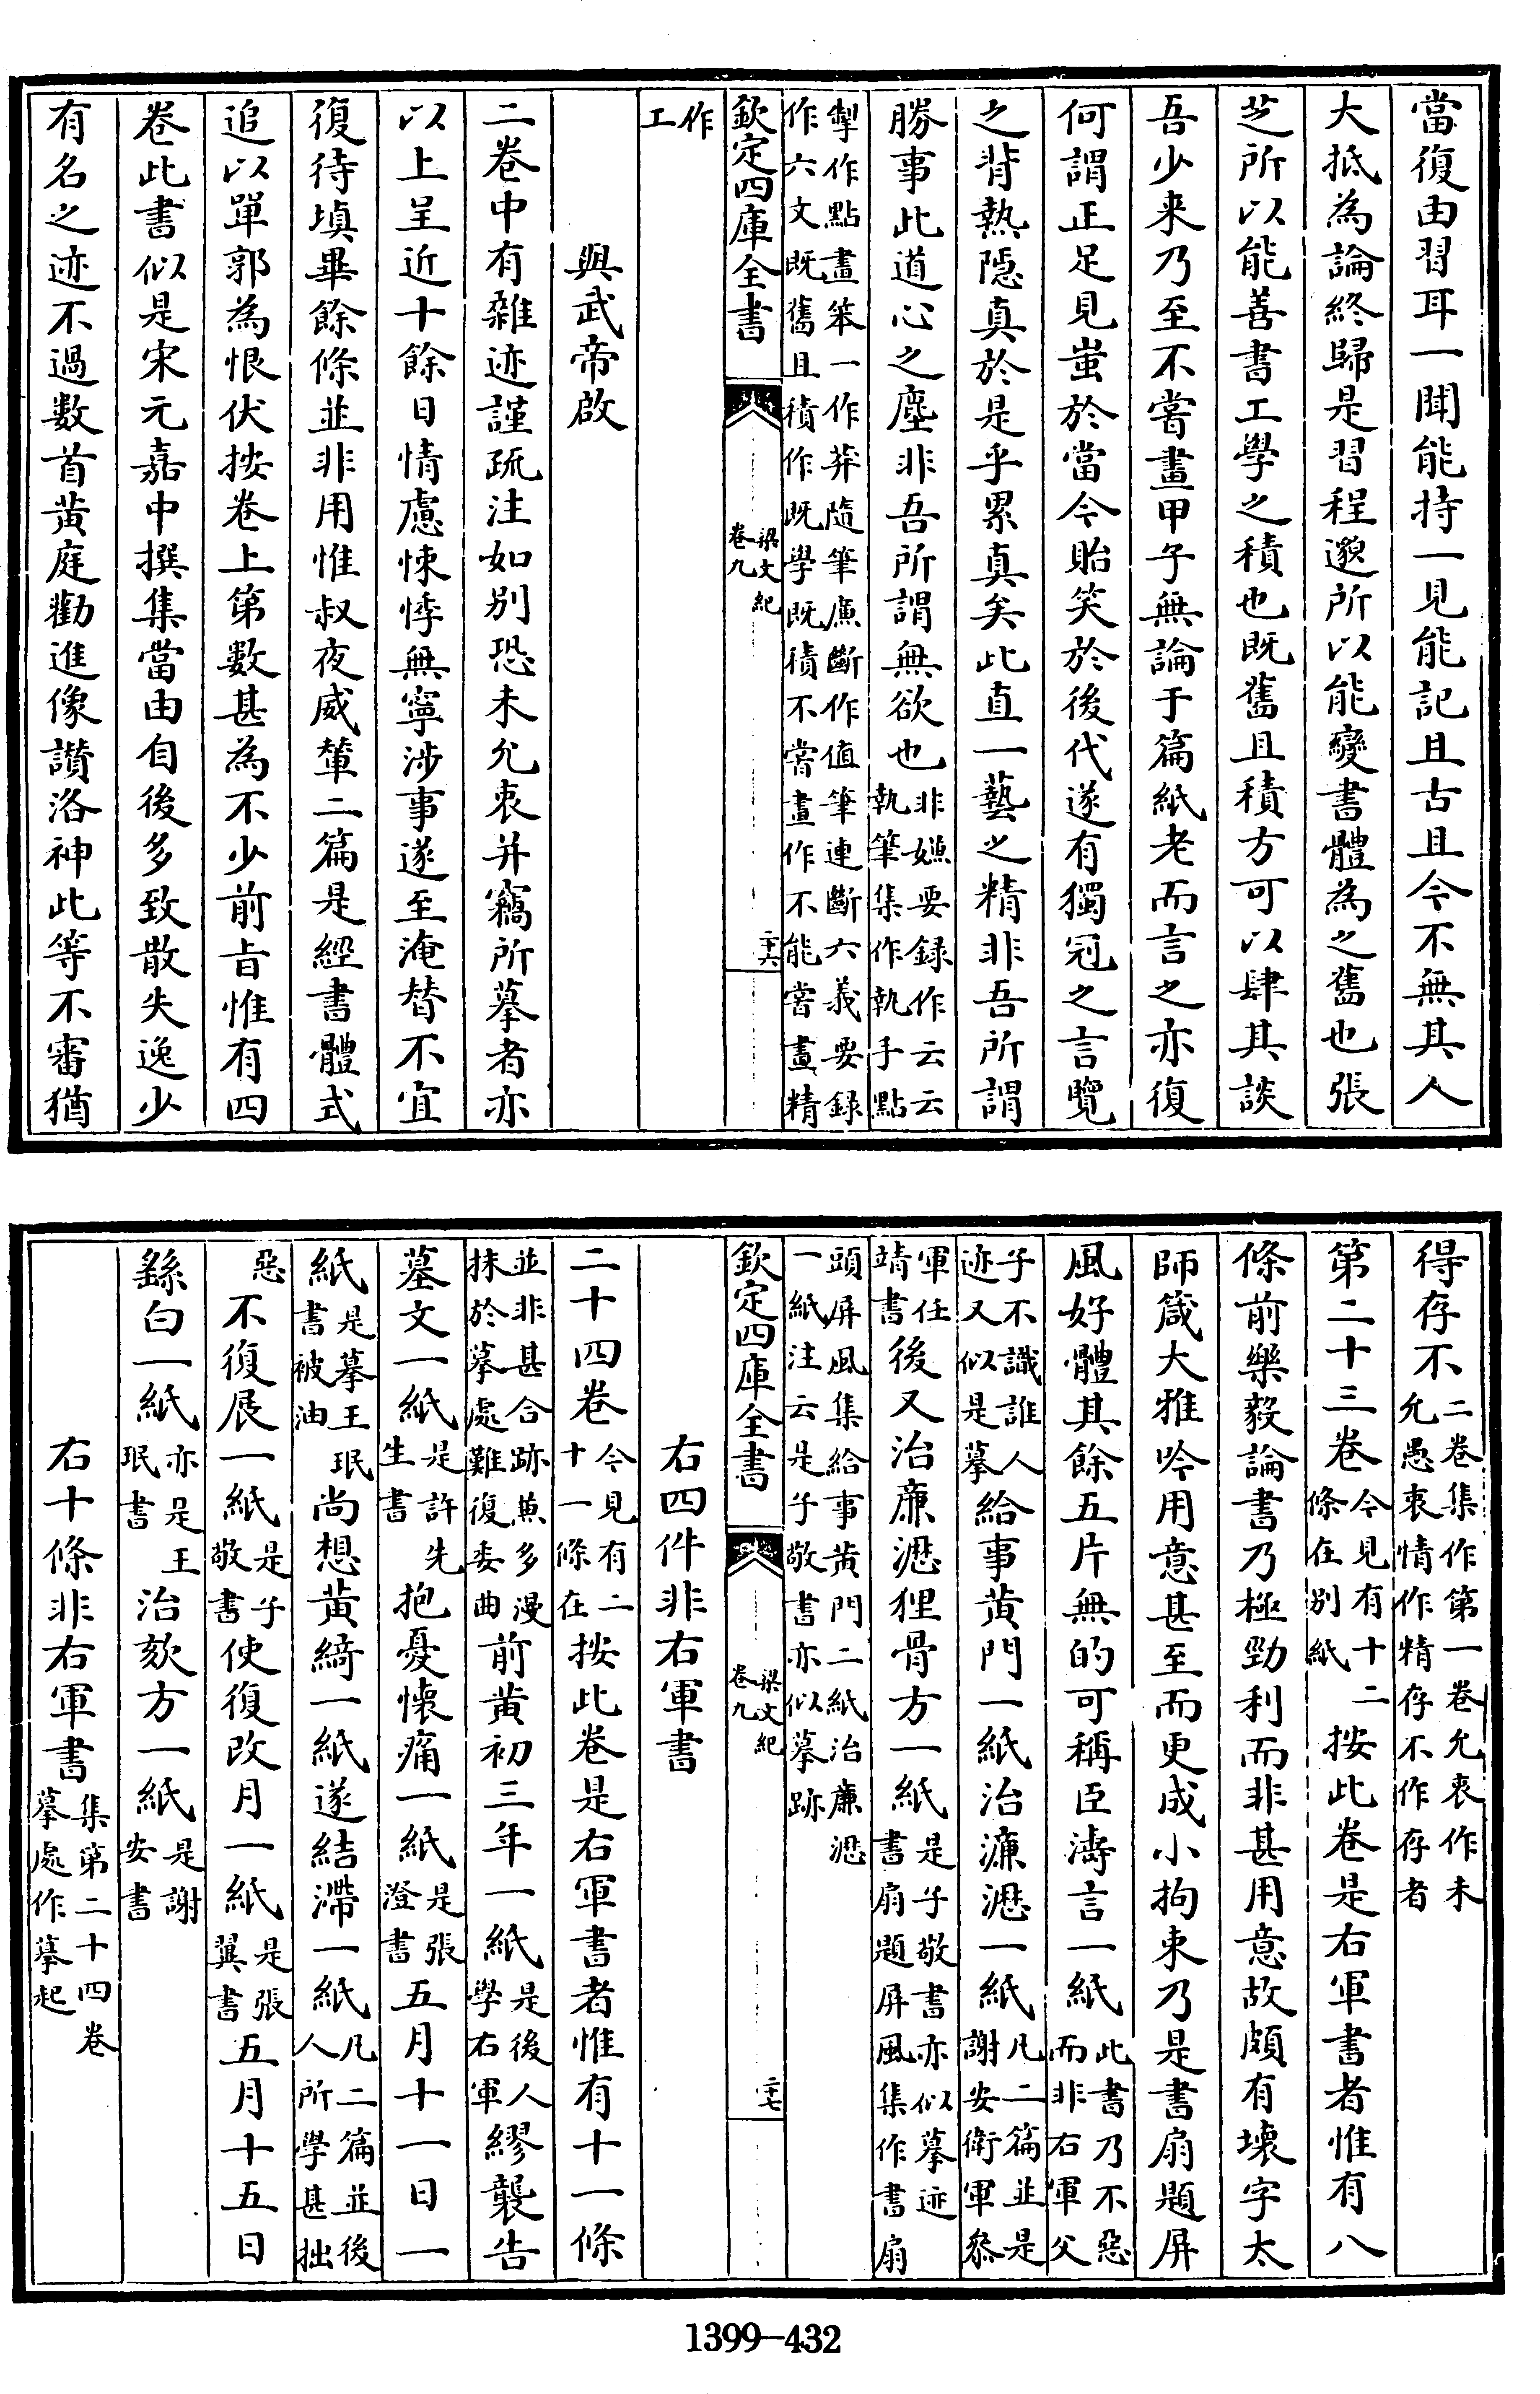 當復由習耳一聞能持一見能記且古且今不無其人
大抵為論終歸是習程邈所以能變書體為之舊也張
芝所以能善書工學之積也既舊且積方可以肆其談
吾少来乃至不嘗畫甲子無論于篇紙老而言之亦復
何謂正足見蚩於當今貽笑於後代遂有獨冠之言覽
之背熱隠真於是乎累真矣此直一藝之精非吾所謂
勝事此道心之塵非吾所謂無欲也非嫵要録作云云執筆集作執手點
掣作點畫笨一作莽隨筆廉斷作值筆連斷六義要録作六文既舊且積作既學既積不嘗畫作不能嘗畫精
欽定四庫全書 梁文紀卷九 二十六
作工
與武帝啟
二卷中有雜迹謹疏注如别恐未允衷并竊所摹者亦
以上呈近十餘日情慮悚悸無寧涉事遂至淹替不宜
復待填畢餘條並非用惟叔夜威輦二篇是經書體式
追以單郭為恨伏按卷上第數甚為不少前㫖惟有四
卷此書似是宋元嘉中撰集當由自後多致散失逸少
有名之迹不過數首黄庭勸進像讃洛神此等不審猶
得存不二卷集作第一卷允衷作未允愚衷情作精存不作存者
第二十三卷今見有十二條在别紙按此卷是右軍書者惟有八
條前樂毅論書乃極勁利而非甚用意故頗有壊字太
師箴大雅吟用意甚至而更成小拘束乃是書扇題屏
風好體其餘五片無的可稱臣濤言一紙此書乃不惡而非右軍父
子不識誰人迹又似是摹給事黄門一紙治㢘瀝一紙凡二篇並是謝安衛軍叅
軍任靖書後又治㢘瀝狸骨方一紙是子敬書亦似摹迹書扇題屏風集作書扇
頭屏風集給事黄門二紙治廉瀝一紙注云是子敬書亦似摹跡
欽定四庫全書 梁文紀卷九 二十七
右四件非右軍書
二十四卷今見有二十一條在按此卷是右軍書者惟有十一條
並非甚合跡兼多漫抹於摹處難復委曲前黄初三年一紙是後人學右軍繆襲告
墓文一紙是許先生書抱憂懐痛一紙是張澄書五月十一日一
紙是摹王珉書被油尚想黄綺一紙遂結滯一紙凡二篇並後人所學甚拙
惡不復展一紙是子敬書使復改月一紙是張翼書五月十五日
繇白一紙亦是王珉書治欬方一紙是謝安書
右十條非右軍書集第二十四卷摹處作摹起
1399—432